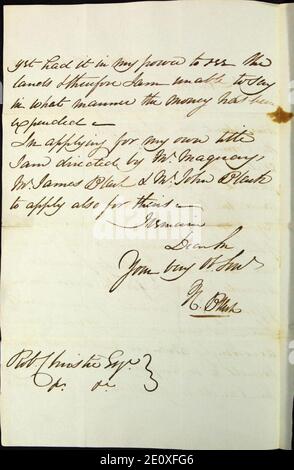 yet had it in my power to see the
lands & therefore I am unable to say
in what manner the money has been
expended –
In applying for my own title
I am directed by Mr.
Mr. James Black & Mr. John Black
to apply also for theirs –
I remain
Dear Sir
Your Ob. Servt.
Black
Rob. Christie Esqr.
&c. &c.
alamy
Image ID: 2E0XFG6
www.alamy.com